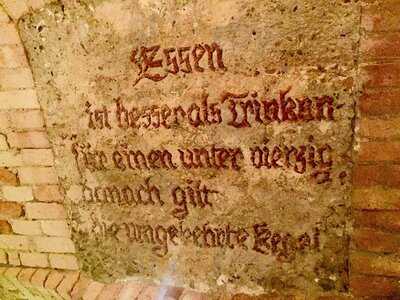 Essen
ist besser als Trinken
für einen unter vierzig,
danach gilt
die umgekehrte Regel